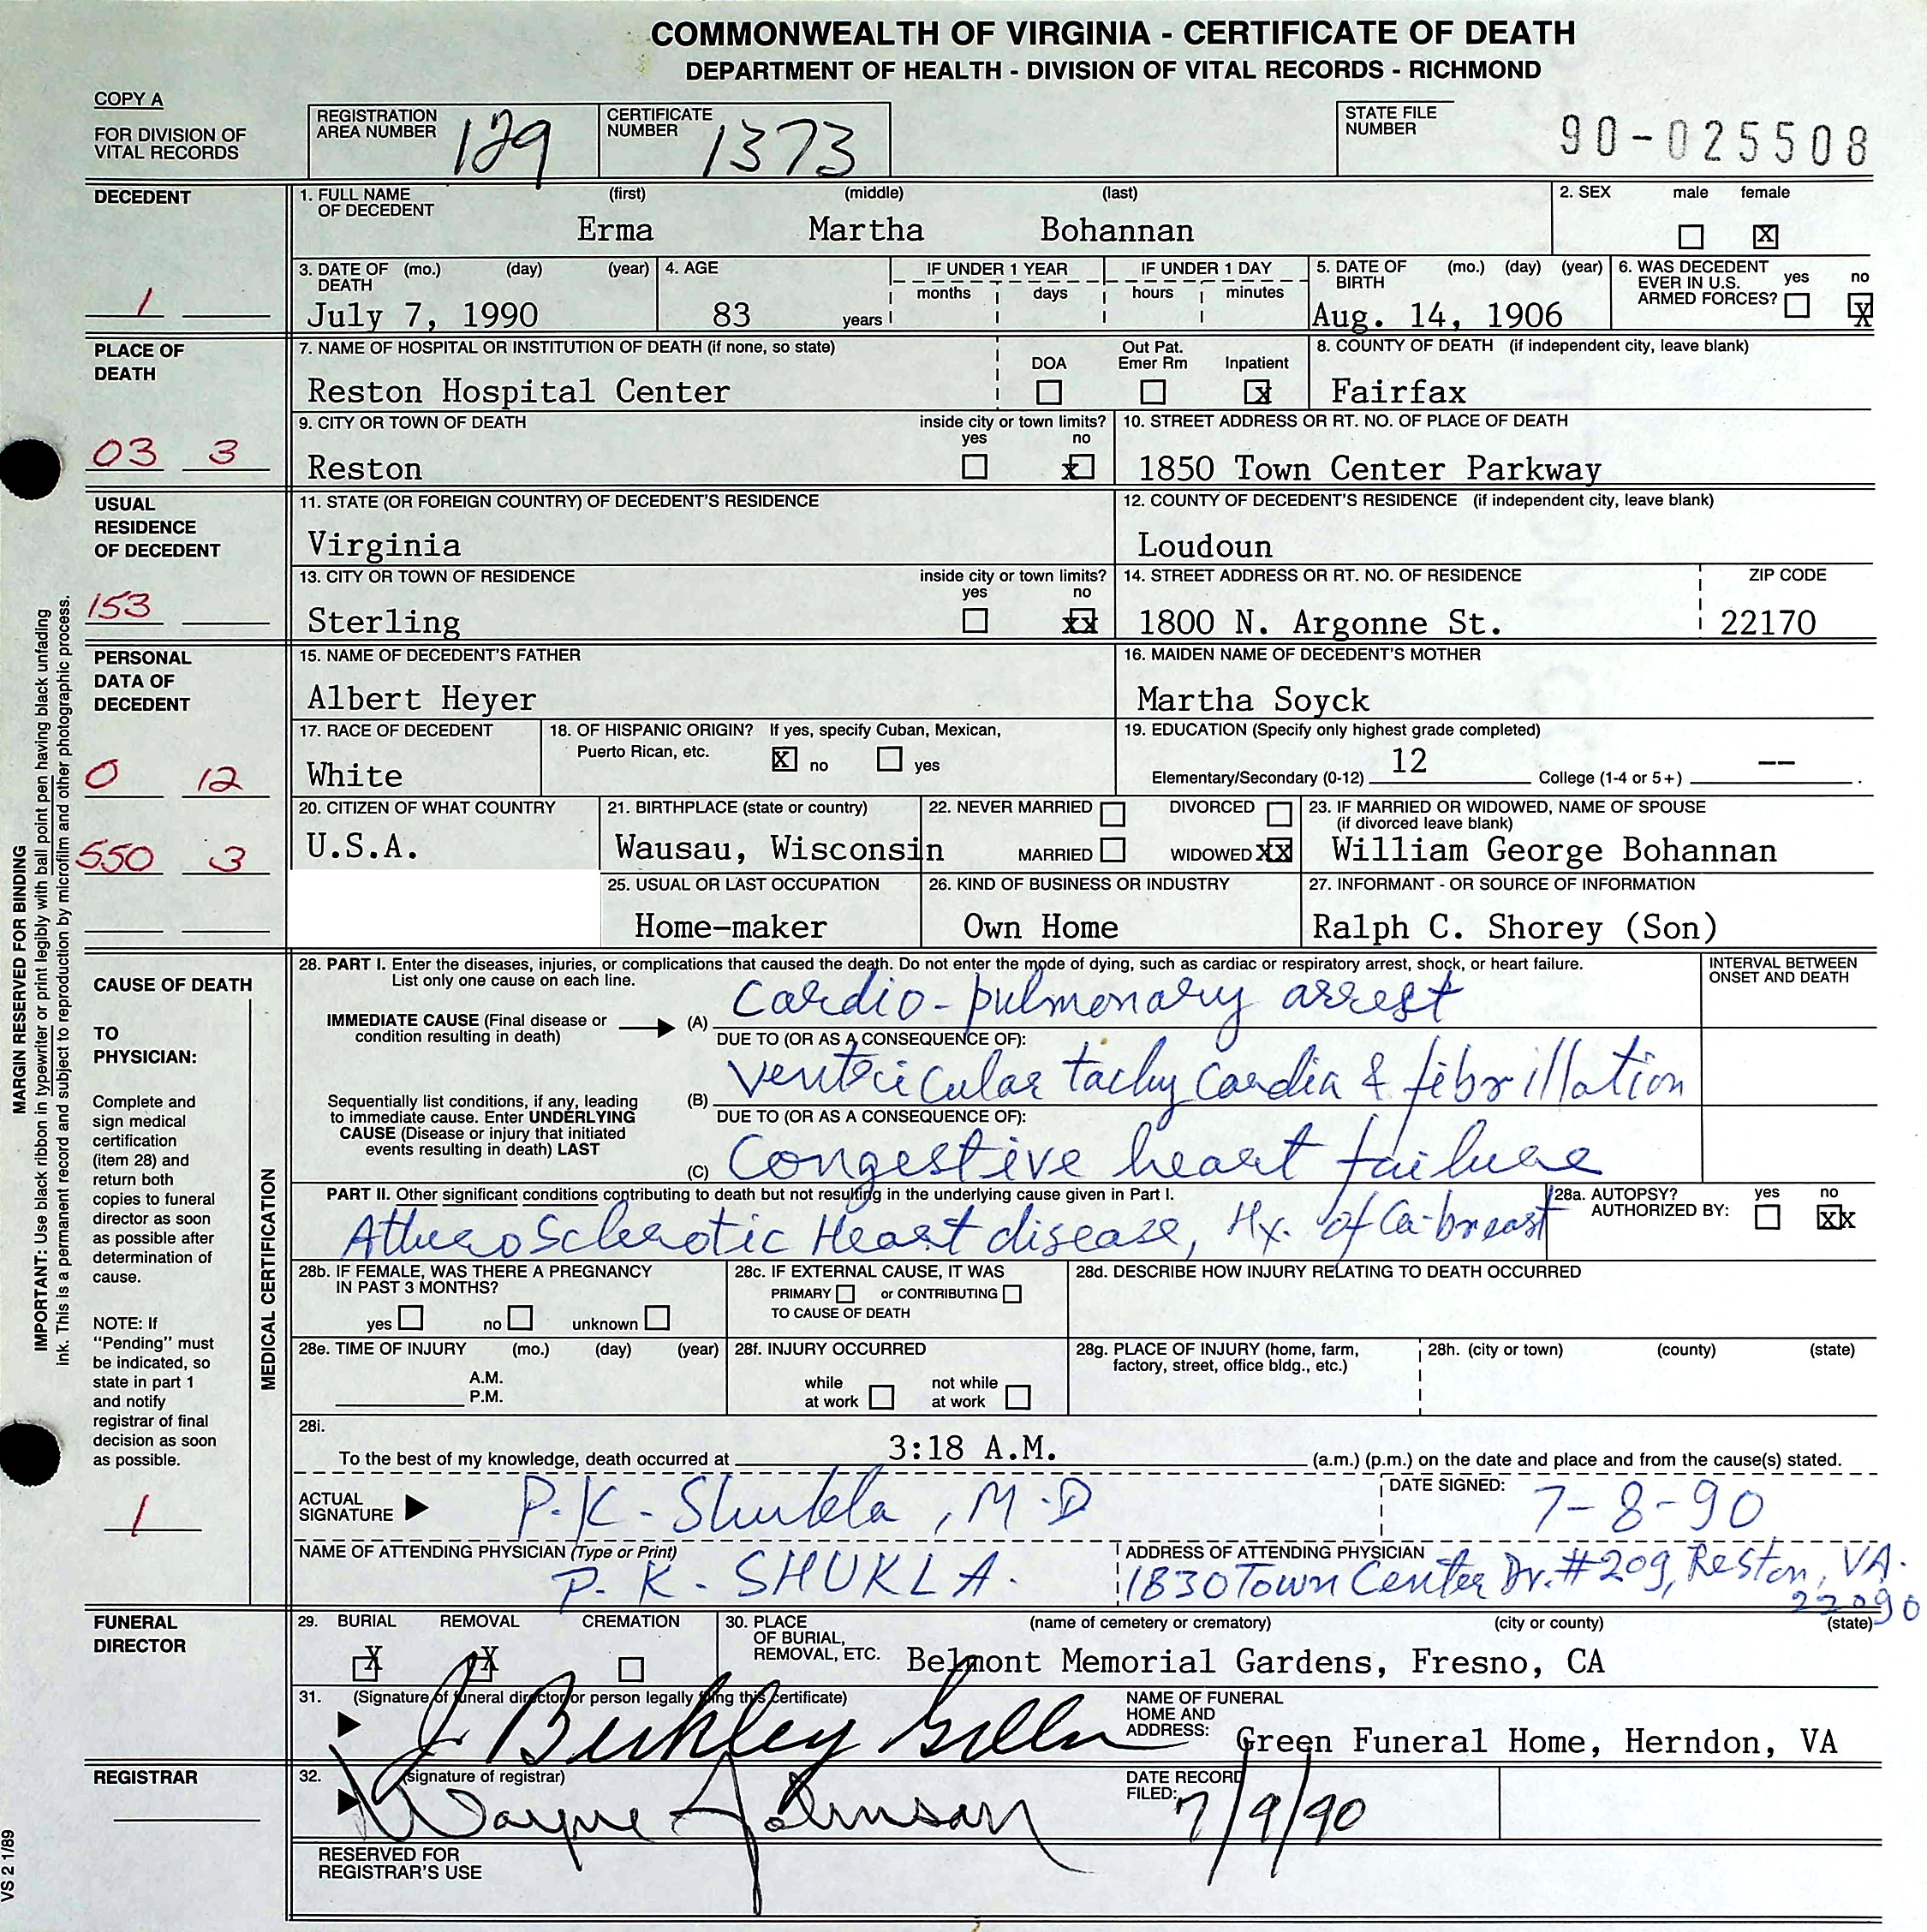 COMMONWEALTH OF VIRGINIA - CERTIFICATE OF DEATH
DEPARTMENT OF HEALTH - DIVISION OF VITAL RECORDS - RICHMOND
COPY A
FOR DIVISION OF
VITAL RECORDS
REGISTRATION
AREA NUMBER 129
CERTIFICATE
NUMBER 1373
STATE FILE
NUMBER 90-025508
DECEDENT
1. FULL NAME
OF DECEDENT (first) (middle) (last)
Erma Martha Bohannan
2. SEX male female
X
3. DATE OF DEATH (mo.) (day) (year)
July 7, 1990
4. AGE
83 years
IF UNDER 1 YEAR
months days
IF UNDER 1 DAY
hours minutes
5. DATE OF BIRTH (mo.) (day) (year)
Aug. 14, 1906
6. WAS DECEDENT
EVER IN U.S.
ARMED FORCES? yes no
X
1
PLACE OF
DEATH
7. NAME OF HOSPITAL OR INSTITUTION OF DEATH (if none, so state)
Reston Hospital Center
DOA
Out Pat.
Emer Rm
Inpatient
x
8. COUNTY OF DEATH (if independent city, leave blank)
Fairfax
03 3
9. CITY OR TOWN OF DEATH
Reston
inside city or town limits?
yes no
x
10. STREET ADDRESS OR RT. NO. OF PLACE OF DEATH
1850 Town Center Parkway
USUAL
RESIDENCE
OF DECEDENT
11. STATE (OR FOREIGN COUNTRY) OF DECEDENT'S RESIDENCE
Virginia
12. COUNTY OF DECEDENT'S RESIDENCE (if independent city, leave blank)
Loudoun
153
13. CITY OR TOWN OF RESIDENCE
Sterling
inside city or town limits?
yes no
xx
14. STREET ADDRESS OR RT. NO. OF RESIDENCE
1800 N. Argonne St.
ZIP CODE
22170
PERSONAL
DATA OF
DECEDENT
15. NAME OF DECEDENT'S FATHER
Albert Heyer
16. MAIDEN NAME OF DECEDENT'S MOTHER
Martha Soyck
0 12
17. RACE OF DECEDENT
White
18. OF HISPANIC ORIGIN? If yes, specify Cuban, Mexican,
Puerto Rican, etc. X no yes
19. EDUCATION (Specify only highest grade completed)
Elementary/Secondary (0-12) 12 College (1-4 or 5+) -- .
550 3
20. CITIZEN OF WHAT COUNTRY
U.S.A.
21. BIRTHPLACE (state or country)
Wausau, Wisconsin
22. NEVER MARRIED DIVORCED
MARRIED WIDOWED XX
23. IF MARRIED OR WIDOWED, NAME OF SPOUSE
(if divorced leave blank)
William George Bohannan
25. USUAL OR LAST OCCUPATION
Home-maker
26. KIND OF BUSINESS OR INDUSTRY
Own Home
27. INFORMANT - OR SOURCE OF INFORMATION
Ralph C. Shorey (Son)
MARGIN RESERVED FOR BINDING
IMPORTANT: Use black ribbon in typewriter or print legibly with ball point pen having black unfading
ink. This is a permanent record and subject to reproduction by microfilm and other photographic process.
CAUSE OF DEATH
TO
PHYSICIAN:
Complete and
sign medical
certification
(item 28) and
return both
copies to funeral
director as soon
as possible after
determination of
cause.
NOTE: If
"Pending" must
be indicated, so
state in part 1
and notify
registrar of final
decision as soon
as possible.
1
MEDICAL CERTIFICATION
28. PART I. Enter the diseases, injuries, or complications that caused the death. Do not enter the mode of dying, such as cardiac or respiratory arrest, shock, or heart failure.
List only one cause on each line.
INTERVAL BETWEEN
ONSET AND DEATH
IMMEDIATE CAUSE (Final disease or
condition resulting in death)
(A) Cardio-pulmonary arrest
DUE TO (OR AS A CONSEQUENCE OF):
Sequentially list conditions, if any, leading
to immediate cause. Enter UNDERLYING
CAUSE (Disease or injury that initiated
events resulting in death) LAST
(B) Ventricular tachycardia & fibrillation
DUE TO (OR AS A CONSEQUENCE OF):
(C) Congestive heart failure
PART II. Other significant conditions contributing to death but not resulting in the underlying cause given in Part I.
Atherosclerotic Heart disease, Hx. of Ca-breast
28a. AUTOPSY?
AUTHORIZED BY: yes no
xx
28b. IF FEMALE, WAS THERE A PREGNANCY
IN PAST 3 MONTHS?
yes no unknown
28c. IF EXTERNAL CAUSE, IT WAS
PRIMARY or CONTRIBUTING
TO CAUSE OF DEATH
28d. DESCRIBE HOW INJURY RELATING TO DEATH OCCURRED
28e. TIME OF INJURY (mo.) (day) (year)
A.M.
P.M.
28f. INJURY OCCURRED
while
at work
not while
at work
28g. PLACE OF INJURY (home, farm,
factory, street, office bldg., etc.)
28h. (city or town) (county) (state)
28i.
To the best of my knowledge, death occurred at 3:18 A.M. (a.m.) (p.m.) on the date and place and from the cause(s) stated.
ACTUAL
SIGNATURE P.K-Shukla, M.D
DATE SIGNED: 7-8-90
NAME OF ATTENDING PHYSICIAN (Type or Print)
P. K. SHUKLA.
ADDRESS OF ATTENDING PHYSICIAN
1830 Town Center Dr. #209, Reston, VA.
22090
FUNERAL
DIRECTOR
29. BURIAL REMOVAL CREMATION
X X
30. PLACE
OF BURIAL,
REMOVAL, ETC.
(name of cemetery or crematory) (city or county) (state)
Belmont Memorial Gardens, Fresno, CA
31. (Signature of funeral director or person legally filing this certificate)
J. Berkley Green
NAME OF FUNERAL
HOME AND
ADDRESS: Green Funeral Home, Herndon, VA
REGISTRAR
32. (signature of registrar)
Wayne Johnson
DATE RECORD
FILED: 7/9/90
RESERVED FOR
REGISTRAR'S USE
VS 2 1/89